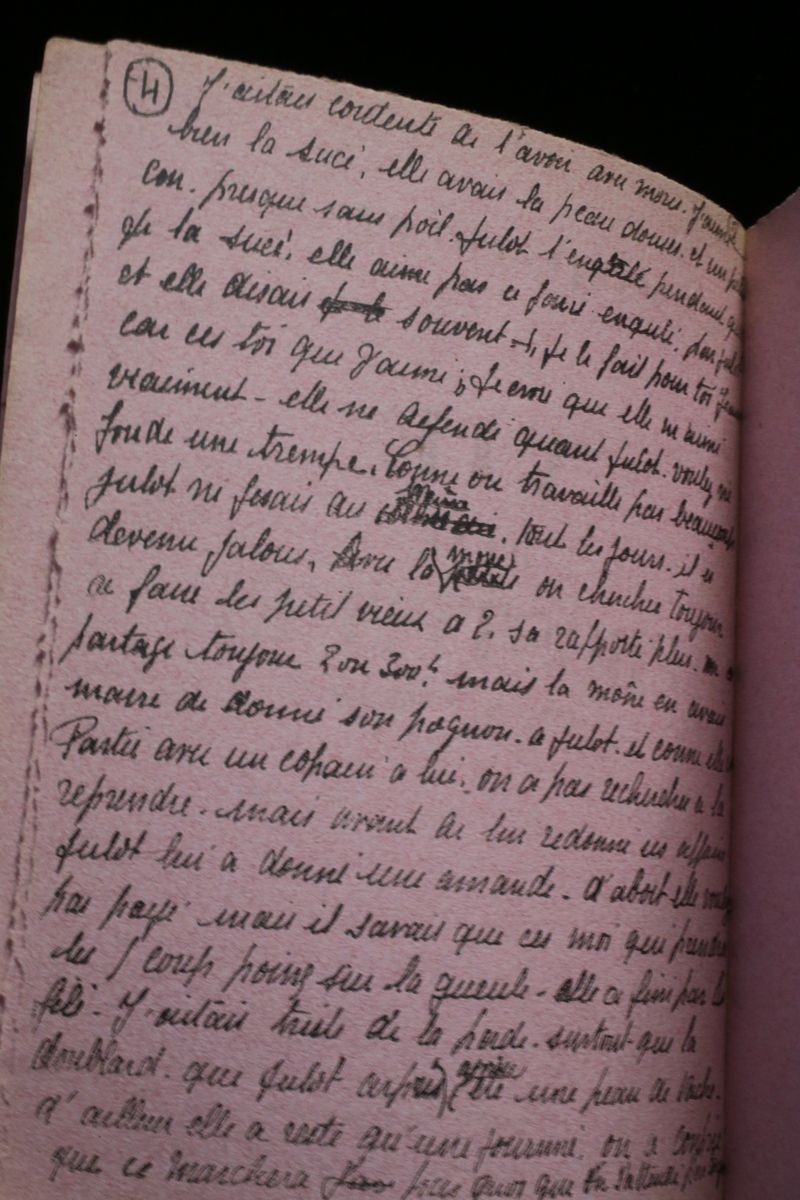 4
J'aitais contente de l'avoir avec nous. J'aimé
bien la sucé, elle avais la peau douce. et un
con. presque sans poil. Julot l'enqulé pendant que
je la sucé, elle aime pas ce fairé enqulé.
et elle disais souvent je le fait pour toi
car ces toi que J'aime, Je croi que elle m'aimé
vraiment - elle me défende quant Julot. voulez me
foude une trempe. Comme on travaille pas beaucoup
Julot ne fesais au tout les jours. il es
devenu Jalous, Avec la mome on cherchez toujour
a faire les petit vieux a 2. sa rapporté plus.
partagé toujour 2 ou 300f. mais la môme en avais
marre de donné son pognon. a Julot. et comme elle
Partie avec un copain a lui. on a pas recherché a la
reprendre. mais avant de lui redonné ces affaires
Julot lui a donné une amande. d'abort elle voulez
pas payé mais il savais que ces moi que prendrai
les coup poing sur la gueule - elle a fini par
filé. J'aitais triste de la perde. surtout que la
doublard. que Julot une peau de vache.
d'ailleur elle a resté qu'une journné. on a
que ce marchera pas quoi que